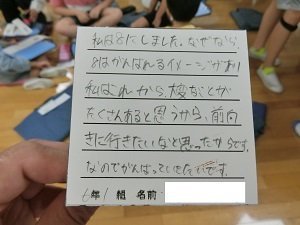 私は8にしました。なぜなら、
8はがんばれるイメージがあり
私はこれから、大変なことが
たくさんあると思うから、前向
きに行きたいなと思ったからです。
なのでがんばっていきたいです。
6年1組 名前